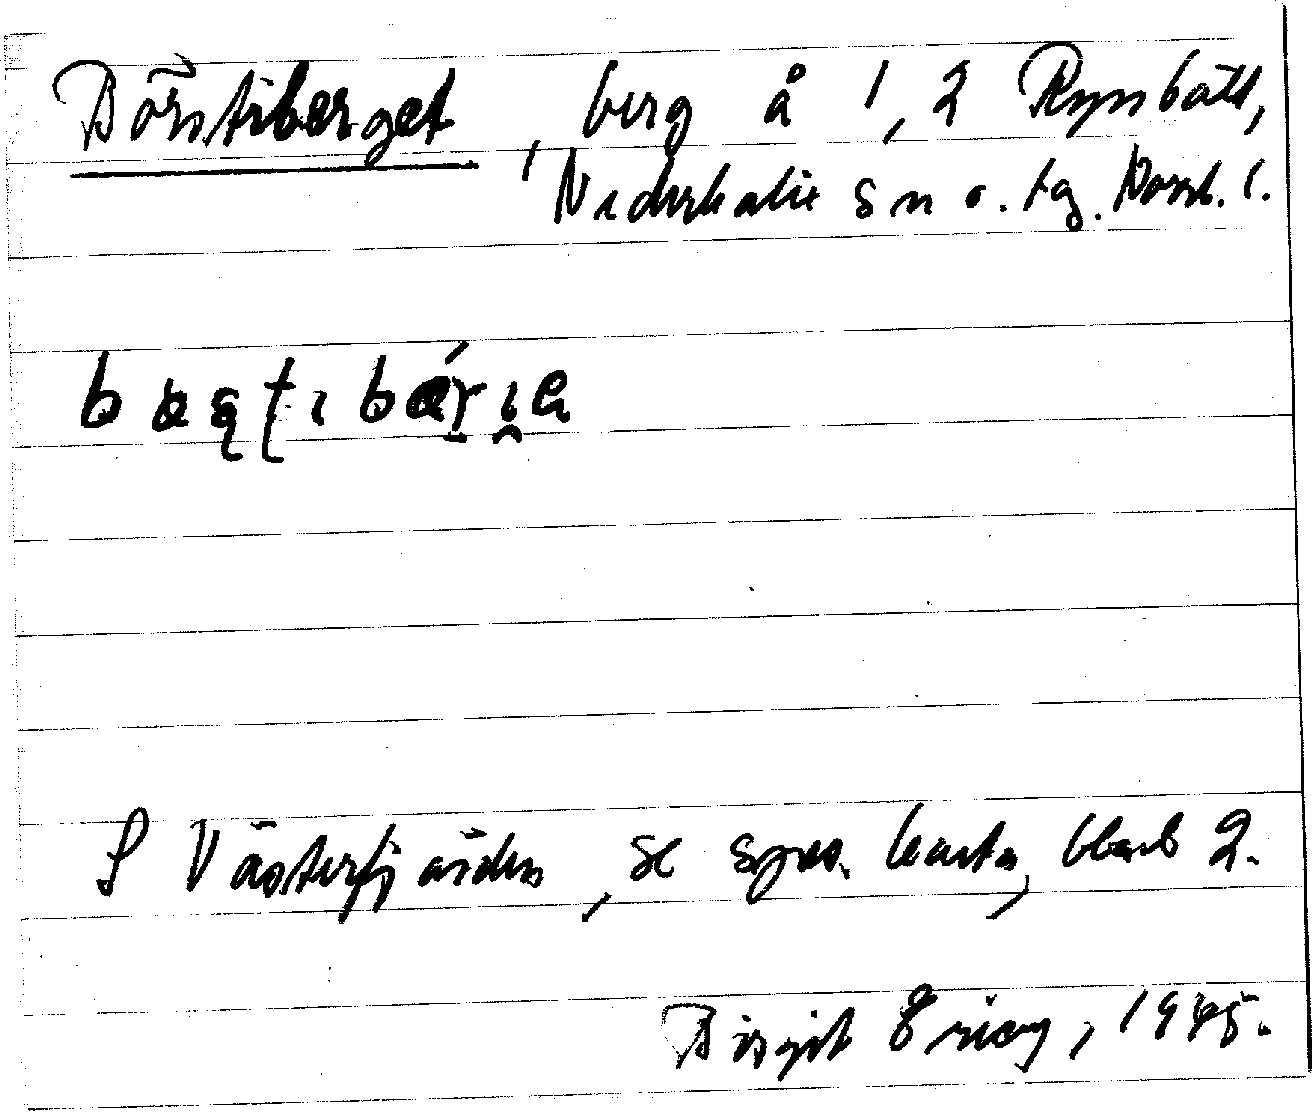 Börstiberget, berg å 1, 2 Rynbätt,
Nederkalix sn o. tg. Norrb. l.
S Västerfjärden, se spec. karta, blad 2.
Birgit Ericy, 1945.